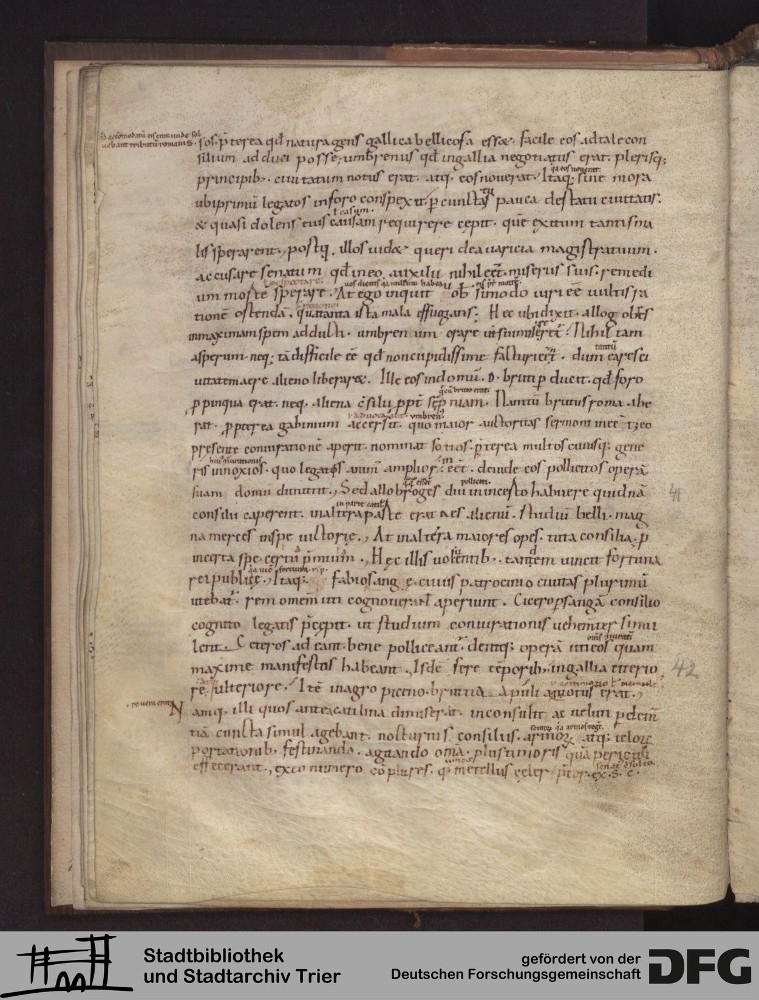 sos. p̄terea qđ natura gens gallica bellicosa esset. facile eos ad tale con
silium adduci posse. umbrenus qđ in gallia negotiatus erat. plerisq;
principib. ciuitatum notus erat. atq. eos nouerat. Itaq; sine mora
ubi primū legatos in foro conspexit. p cunctat pauca de statu ciuitatis.
& quasi dolens eius casum requirere cepit. quē exitum tantis ma
lis sperarent. postq̄. illos uidet queri de auaricia magistratuum.
accusare senatum qđ in eo auxilii nihil eēt. miseriis suis remedi
um morte sperare. At ego inquit uobis si modo uiri eē uultis ra
tionē ostendā. qua tanta ista mala effugiatis. Hec ubi dixit. allog
in maximam spem adducti. umbrenum orare ut sui misereret. Nihil tam
asperum. neq; tā difficile eē qđ non cupidissime facturi eēnt. dum ea res ci
uitatem aere alieno liberaret. Ille eos in domū. D. bruti pducit. qđ foro
ppinqua erat. neq. aliena csilii ppt semp niam. Nam tū brutus roma abe
rat. ppterea gabinium accersit. quo maior auctoritas sermoni ineēt. eo
presente coniurationē aperit. nominat socios. p̄terea multos cuiusq; gene
ris innoxios. quo legatis anim̄ amplior eēt. deinde eos pollicitos operā
suam domū dimittit. Sed allobroges diu in incerto habuere quidnā
consilii caperent. in altera parte erat aes alienū. studiū belli. mag
na merces in spe uictorie. At in altera maiores opes. tuta consilia. p
incerta spe certa p̄mia. Hec illis uoluentib. tandem uincit fortuna
rei publice. Itaq; fabio sange cuius patrocinio ciuitas plurimū
utebat. rem omem uti cognouerant aperiunt. Cicero p sangā consilio
cognito legatis p̄cepit. ut studium coniurationis uehemter simu
lent. Ceteros adeant. bene polliceant. dentq; operā uti eos quam
maxime manifestos habeant. Isdē fere tēporib. in gallia citerio
re. & ulteriore. Itē in agro piceno. bruttia apuli motus erat.
Namq. illi quos ante catilina dimiserat. inconsulte ac ueluti p dem
tiā cuncta simul agebant. nocturnis consiliis. armorz atq; telorz
portationib. festinando. agitando omia. plus timoris quā periculi
effecerant. ex eo numero cōplures. q. metellus celer p̄tor. ex. S. C.
41
42
Stadtbibliothek
und Stadtarchiv Trier
gefördert von der
Deutschen Forschungsgemeinschaft
DFG